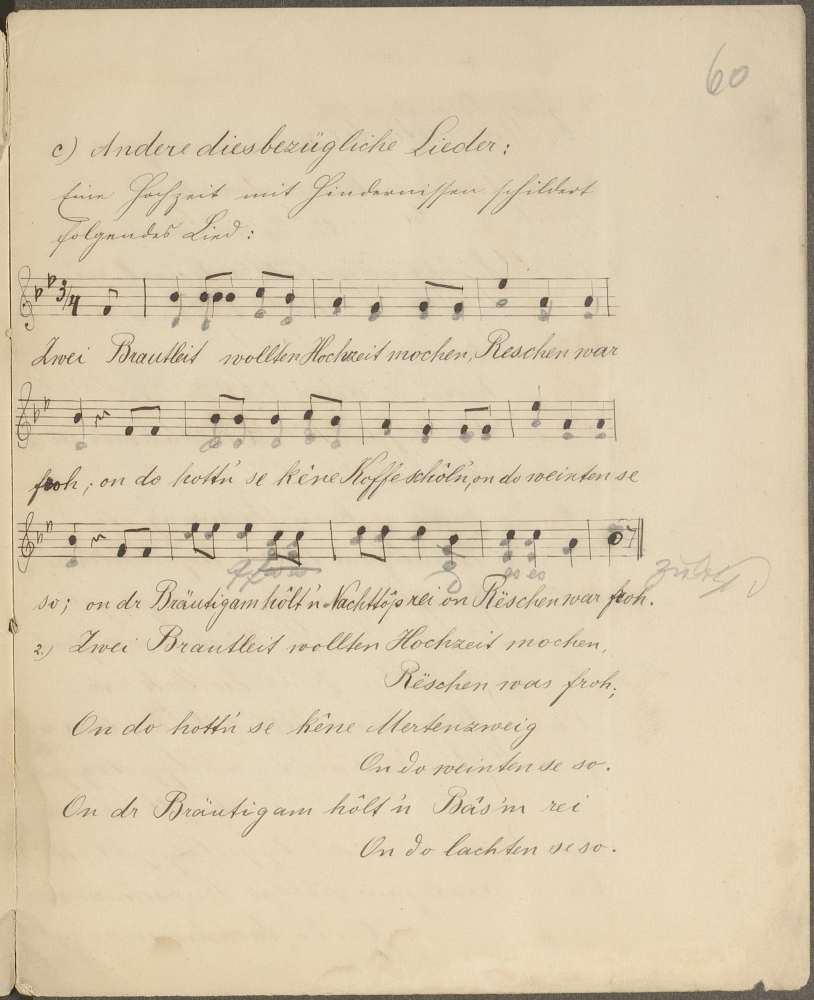 60
c) Andere diesbezügliche Lieder:
Eine Hochzeit mit Hindernissen schildert
folgendes Lied:
3/4
Zwei Brautleit wollten Hochzeit mochen, Reschen war
froh; on do hott'n se kêne Koffeschôl'n, on do weinten se
so; on dr Bräutigam hôlt'n Nachttôp rei on Rëschen war froh.
2.) Zwei Brautleit wollten Hochzeit mochen,
Rëschen was froh;
On do hott'n se kêne Mertenzweig
On do weinten se so.
On dr Bräutigam hôlt'n Bâs'm rei
On do lachten se so.